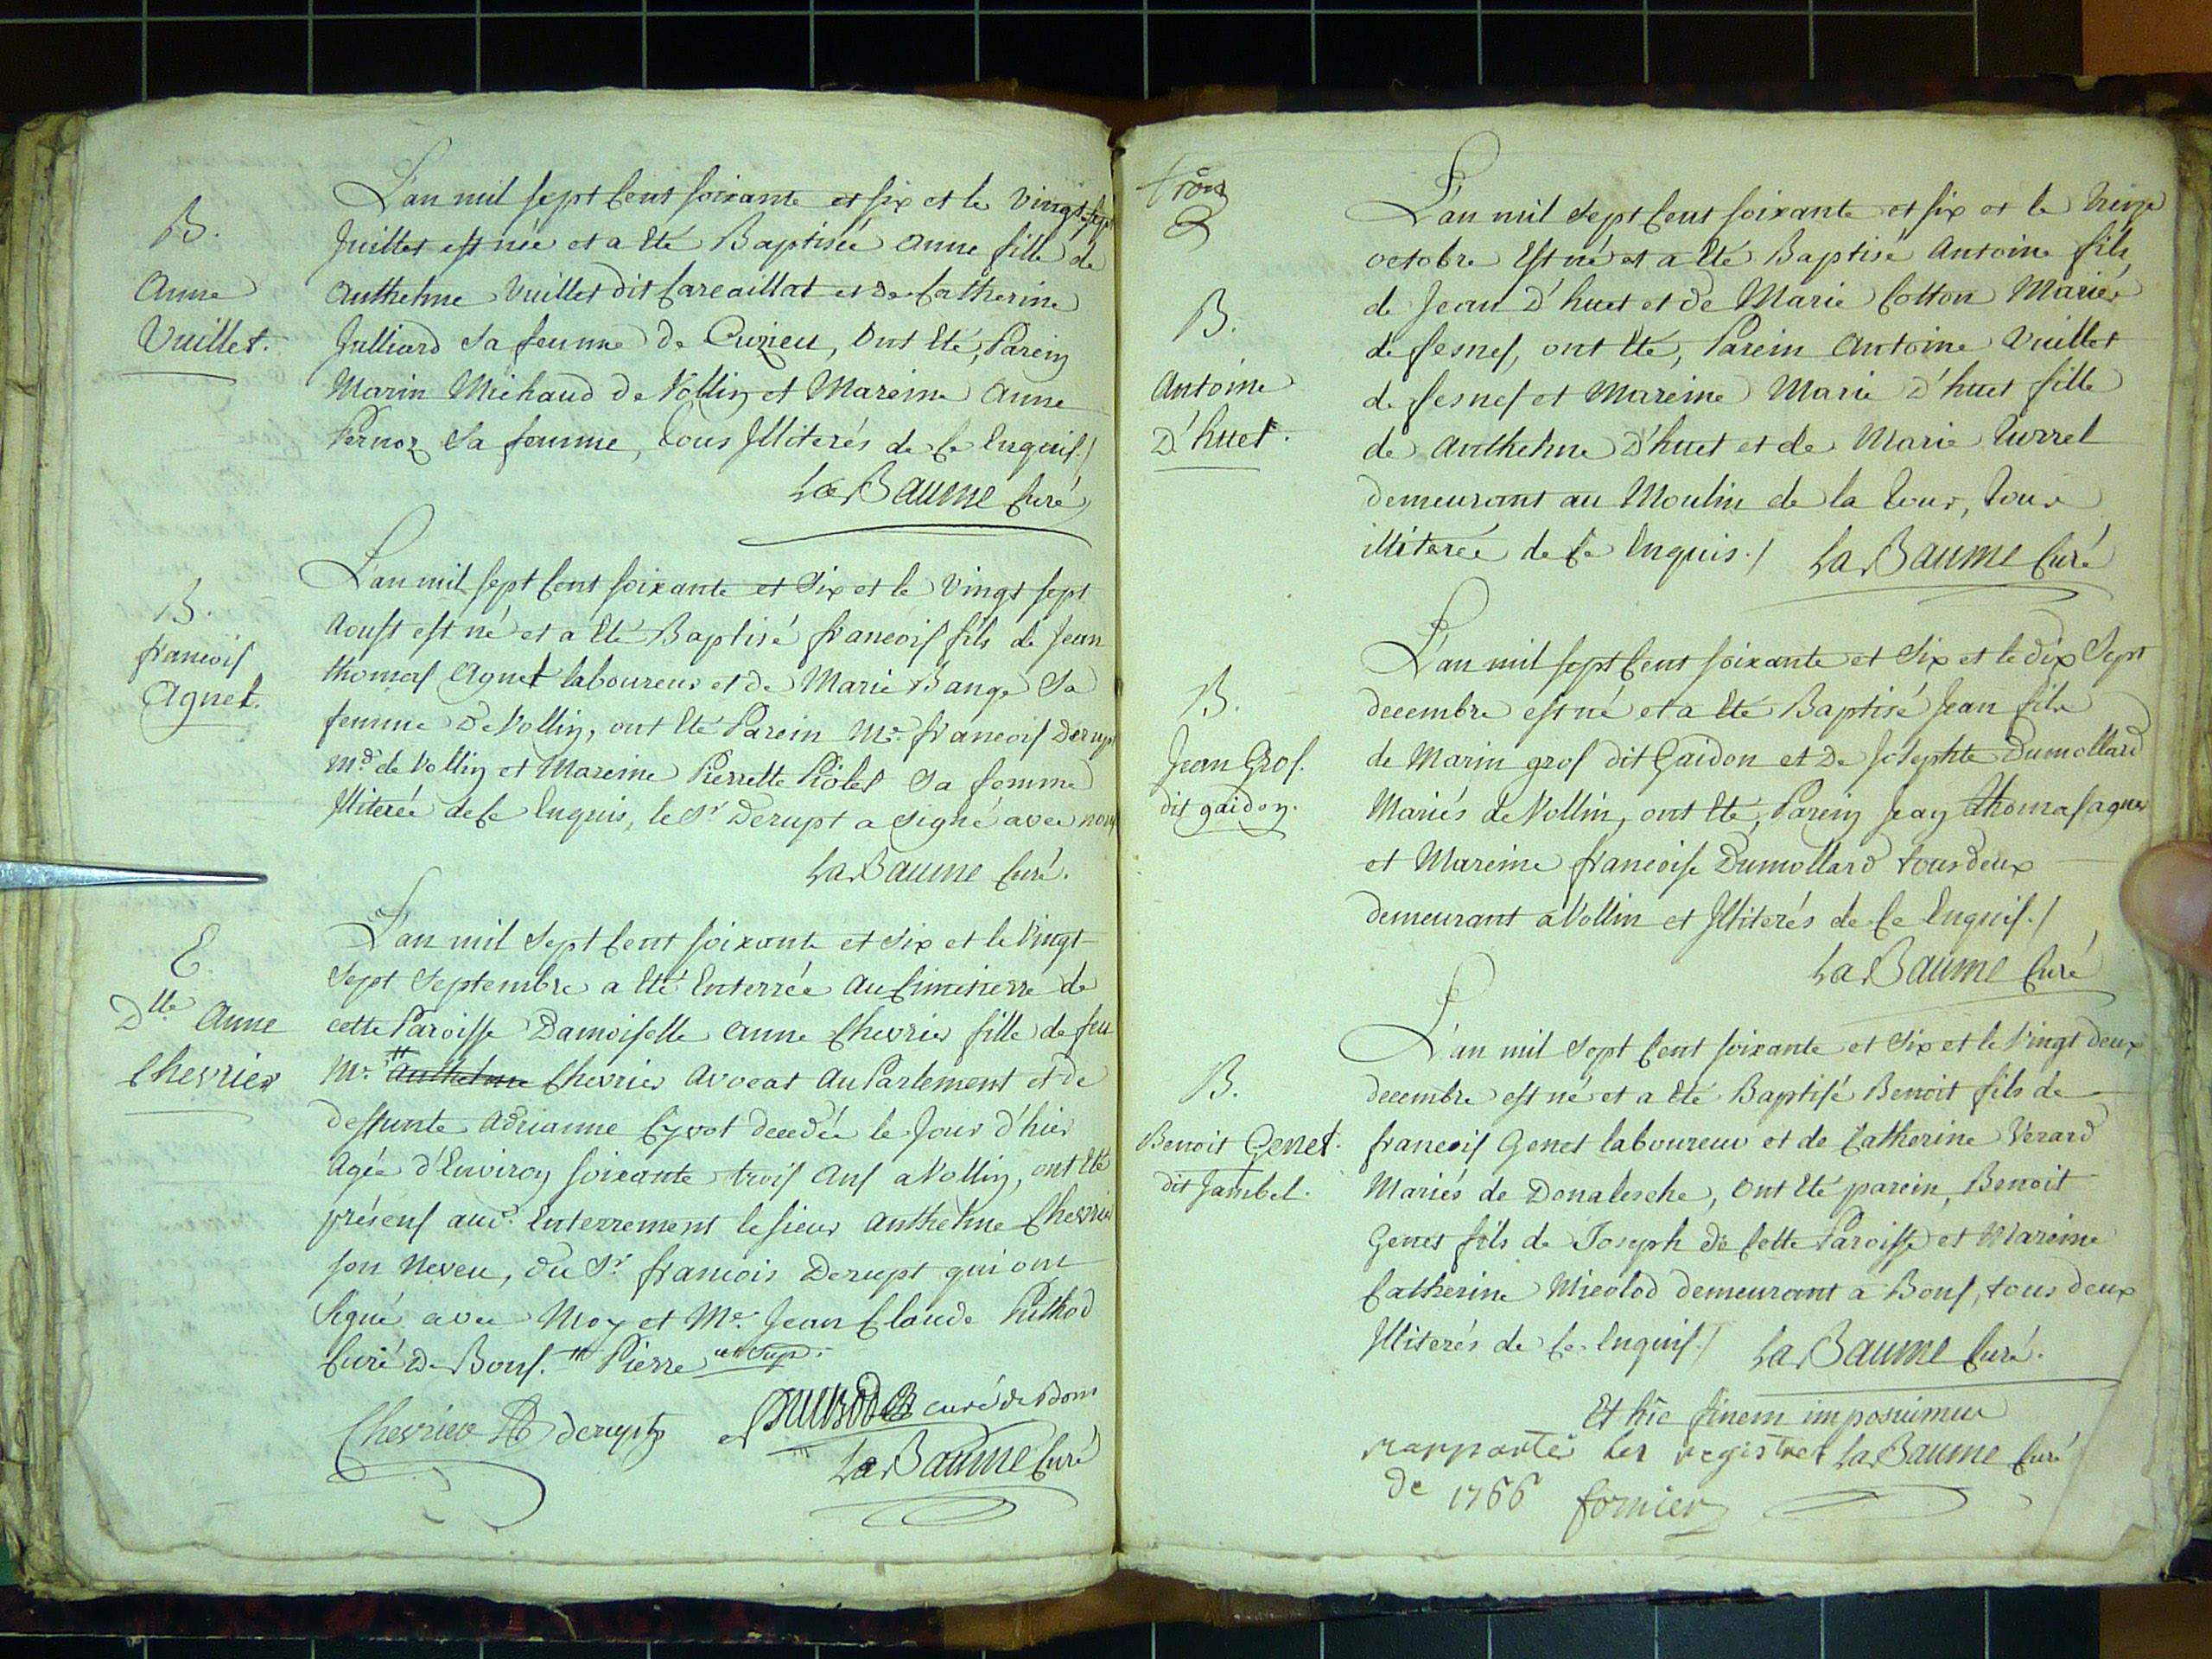 B.
Anne
Vuillet.
L'an mil sept cent soixante et six et le vingt sept
Juillet est née et a eté Baptisée Anne fille de
Anthelme Vuillet dit Carcaillat et de Catherine
Julliard sa femme de Cuzieu, ont eté, Parein
Marin Michaud de Vollin et Mareine Anne
Pernoz sa femme, tous Illiterés de ce Enquis./
La Baume Curé
B.
francois
Agnet.
L'an mil sept cent soixante et Six et le Vingt sept
Aoust est né et a eté Baptisé francois fils de Jean
thomas Agnet laboureur et de Marie Bange Sa
femme de Vollin, ont eté Parein Mr. francois Derupt
Md. de Vollin et Mareine Pierrette Piolet Sa femme
Illiterée de ce Enquis, le Sr Derupt a signé avec nous
La Baume Curé.
E
Dlle Anne
Chevrier
L'an mil Sept Cent soixante et Six et le Vingt
Sept Septembre a eté Enterrée au Cimetierre de
cette Paroisse Damoiselle Anne Chevrier fille de feu
Mr. Anthelme Chevrier Avocat au Parlement et de
deffunte Adrianne Cyvot decedée le Jour d'hier
Agée d'Environ soixante trois Ans a Vollin, ont Eté
présens aud. Enterrement le sieur Anthelme Chevrier
son Neveu, du Sr. francois Derupt qui ont
Signé avec Moy et Mr. Jean Claude Puthod
Curé de Bons. Pierre ut sup.
Chevrier derupt Puthod curé de Bons
La Baume Curé
trois
B.
Antoine
D'huet.
L'an mil Sept Cent soixante et six et le treize
octobre Est né et a eté Baptisé Antoine fils
de Jean D'huet et de Marie Cotton Mariés
de Cesnes, ont eté, Parein Antoine Vuillet
de Cesnes et Mareine Marie D'huet fille
de Anthelme D'huet et de Marie Turrel
demeurant au Moulin de la tour, tous
illiterée de ce Enquis./ La Baume Curé
B.
Jean Gros.
dit gaidon.
L'an mil sept Cent soixante et Six et le dix Sept
decembre est né et a eté Baptisé Jean fils
de Marin gros dit Gaidon et de Josephte Dumollard
Mariés de Vollin, ont eté, Parein Jean thomas agnet
et Mareine francoise Dumollard tous deux
demeurant a Vollin et Illiterés de ce Enquis./
La Baume Curé
B.
Benoit Genet.
dit Jambel.
L'an mil Sept Cent soixante et Six et le Vingt deux
decembre est né et a eté Baptisé Benoit fils de
francois Genet laboureur et de Catherine Verard
Mariés de Donalesche, ont eté parein, Benoit
Genet fils de Joseph de Cette Paroisse et Mareine
Catherine Micolod demeurant a Bons, tous deux
Illiterés de Ce Enquis./ La Baume Curé.
Et hic finem imposuimus
rapporté les registres La Baume Curé
de 1766 fornier